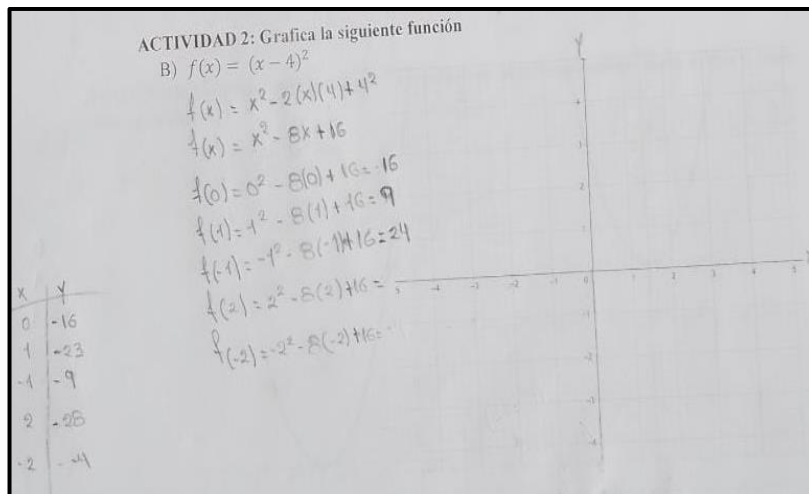 ACTIVIDAD 2: Grafica la siguiente función
B) f(x) = (x − 4)²
f(x) = x² - 2(x)(4) + 4²
f(x) = x² - 8x + 16
f(0) = 0² - 8(0) + 16 = -16
f(1) = 1² - 8(1) + 16 = 9
f(-1) = -1² - 8(-1) + 16 = 24
f(2) = 2² - 8(2) + 16 =
f(-2) = -2² - 8(-2) + 16 =
x y
0 -16
1 -23
-1 -9
2 -28
-2 -4
Y
4
3
2
5 -4 -3 -2 0 1 2 3 4 5
-1
-2
-3
-4